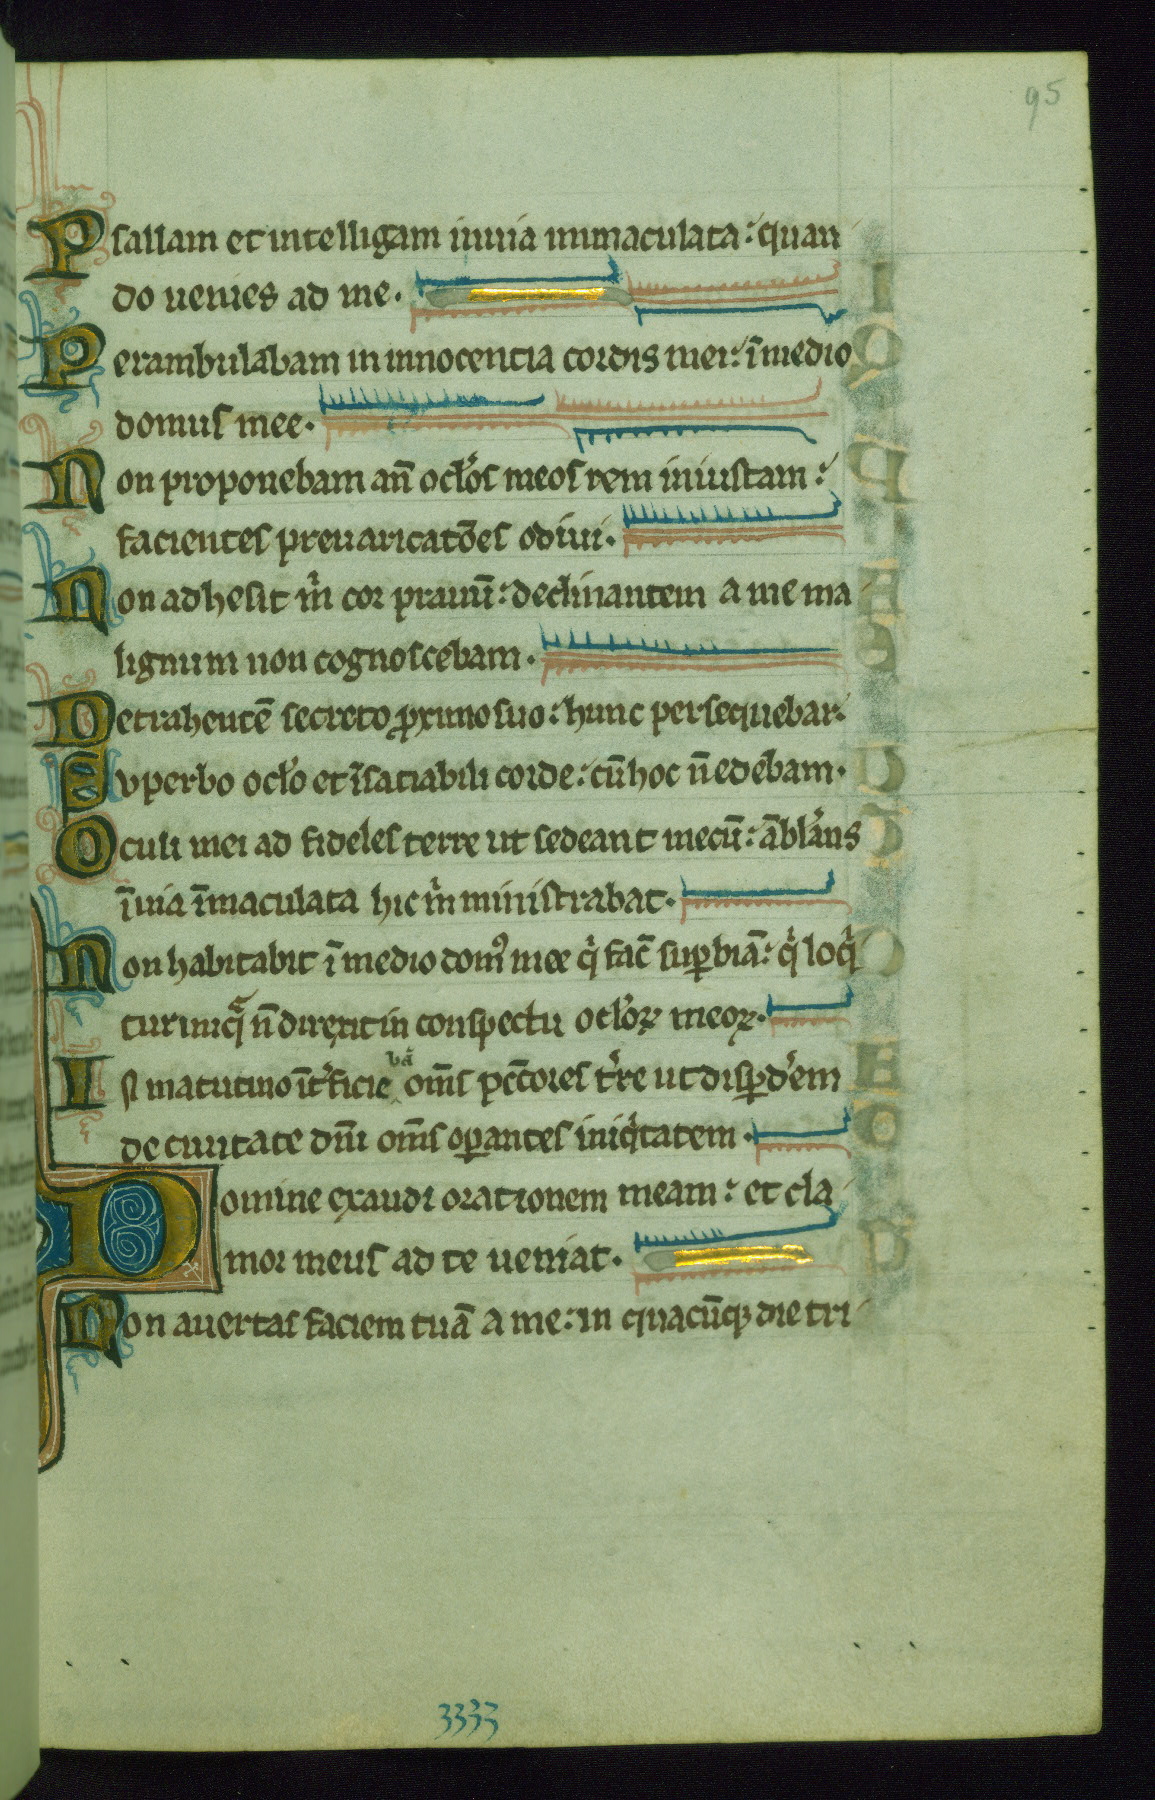 95
Psallam et intelligam inuia immaculata: quan
do uenies ad me.
Perambulabam in innocentia cordis mei: ī medio
domus mee.
Non proponebam an̄ oc̄los meos rem iniustam:
facientes preuaricatōes odiui.
Non adhesit m̄ cor prauū: declinantem a me ma
lignum non cognoscebam.
Detrahentē secreto ꝓximo suo: hunc persequebar.
Svperbo oc̄lo et īsatiabili corde: cū hoc n̄ edebam.
Oculi mei ad fideles terre ut sedeant mecū: āblans
ī uia īmaculata hic m̄ ministrabat.
Non habitabit ī medio domꝰ mee q̄ fac̄ suꝑbiā: q̄ loq̄
tur iniq̄ n̄ direxit in conspectu oc̄loꝝ meoꝝ.
bā
In matutino īt̄ficie om̄s pc̄cores t̄re ut disꝑd̄em
de ciuitate dn̄i om̄s oꝑantes iniq̄tatem.
Domine exaudi orationem meam: et cla
mor meus ad te ueniat.
Non auertas faciem tuā a me: in quacūqꝫ die tri
3333